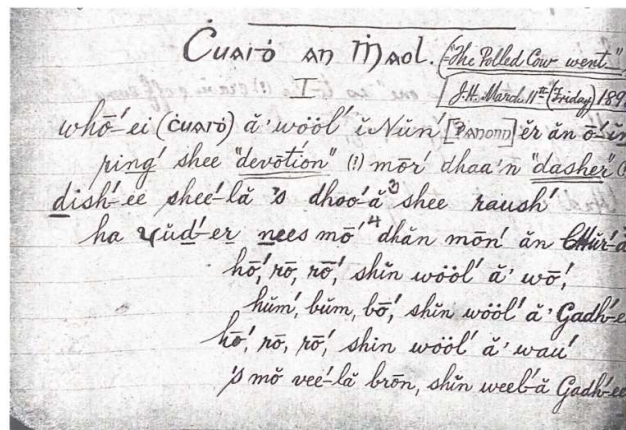 Ċuaiḋ an Ṁaol. (="The Polled Cow went."
I
J.H. March 11th (Friday) 189
whō´-ei (ċuaiḋ) ă´ wööl´ ĭ Nŭn´ [Panonn] ĕr ăn ō´-ĭn
ping´ shee "devōtion" (1) mōr´ dhaa'n "dasher"
dish´-ee shee´-lă 's dhoo´-ă 3 shee raush´
ha ɤŭd´-er nees mō´ 4 dhăn mōn´ ăn Chŭr´-ă
hō´, rō, rō,´ shĭn wööl´ ă' wō,´
hŭm,´ bŭm, bō,´ shĭn wööl´ ă' Gadh´-e
hō,´ rō, rō,´ shin wööl´ ă' wau´
's mō vee´-lă brōn, shĭn weel´-ă Gadh´-ee